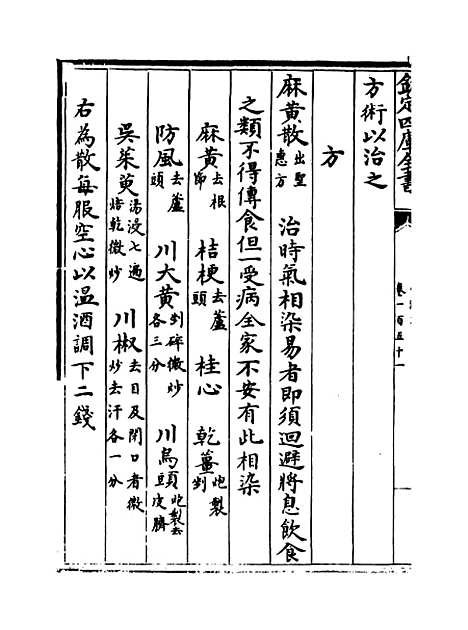 欽定四庫全書
卷一百五十一
方術以治之
方
麻黄散出聖惠方 治時氣相染易者即須迴避將息飲食
之類不得傳食但一受病全家不安有此相染
麻黄去根節 桔梗去蘆頭 桂心 乾薑炮製剉
防風去蘆頭 川大黄剉碎微炒各三分 川烏頭炮製去豆皮臍
吳茱萸湯浸七遍焙乾微炒 川椒去目及開口者微炒去汗各一分
右為散每服空心以温酒調下二錢